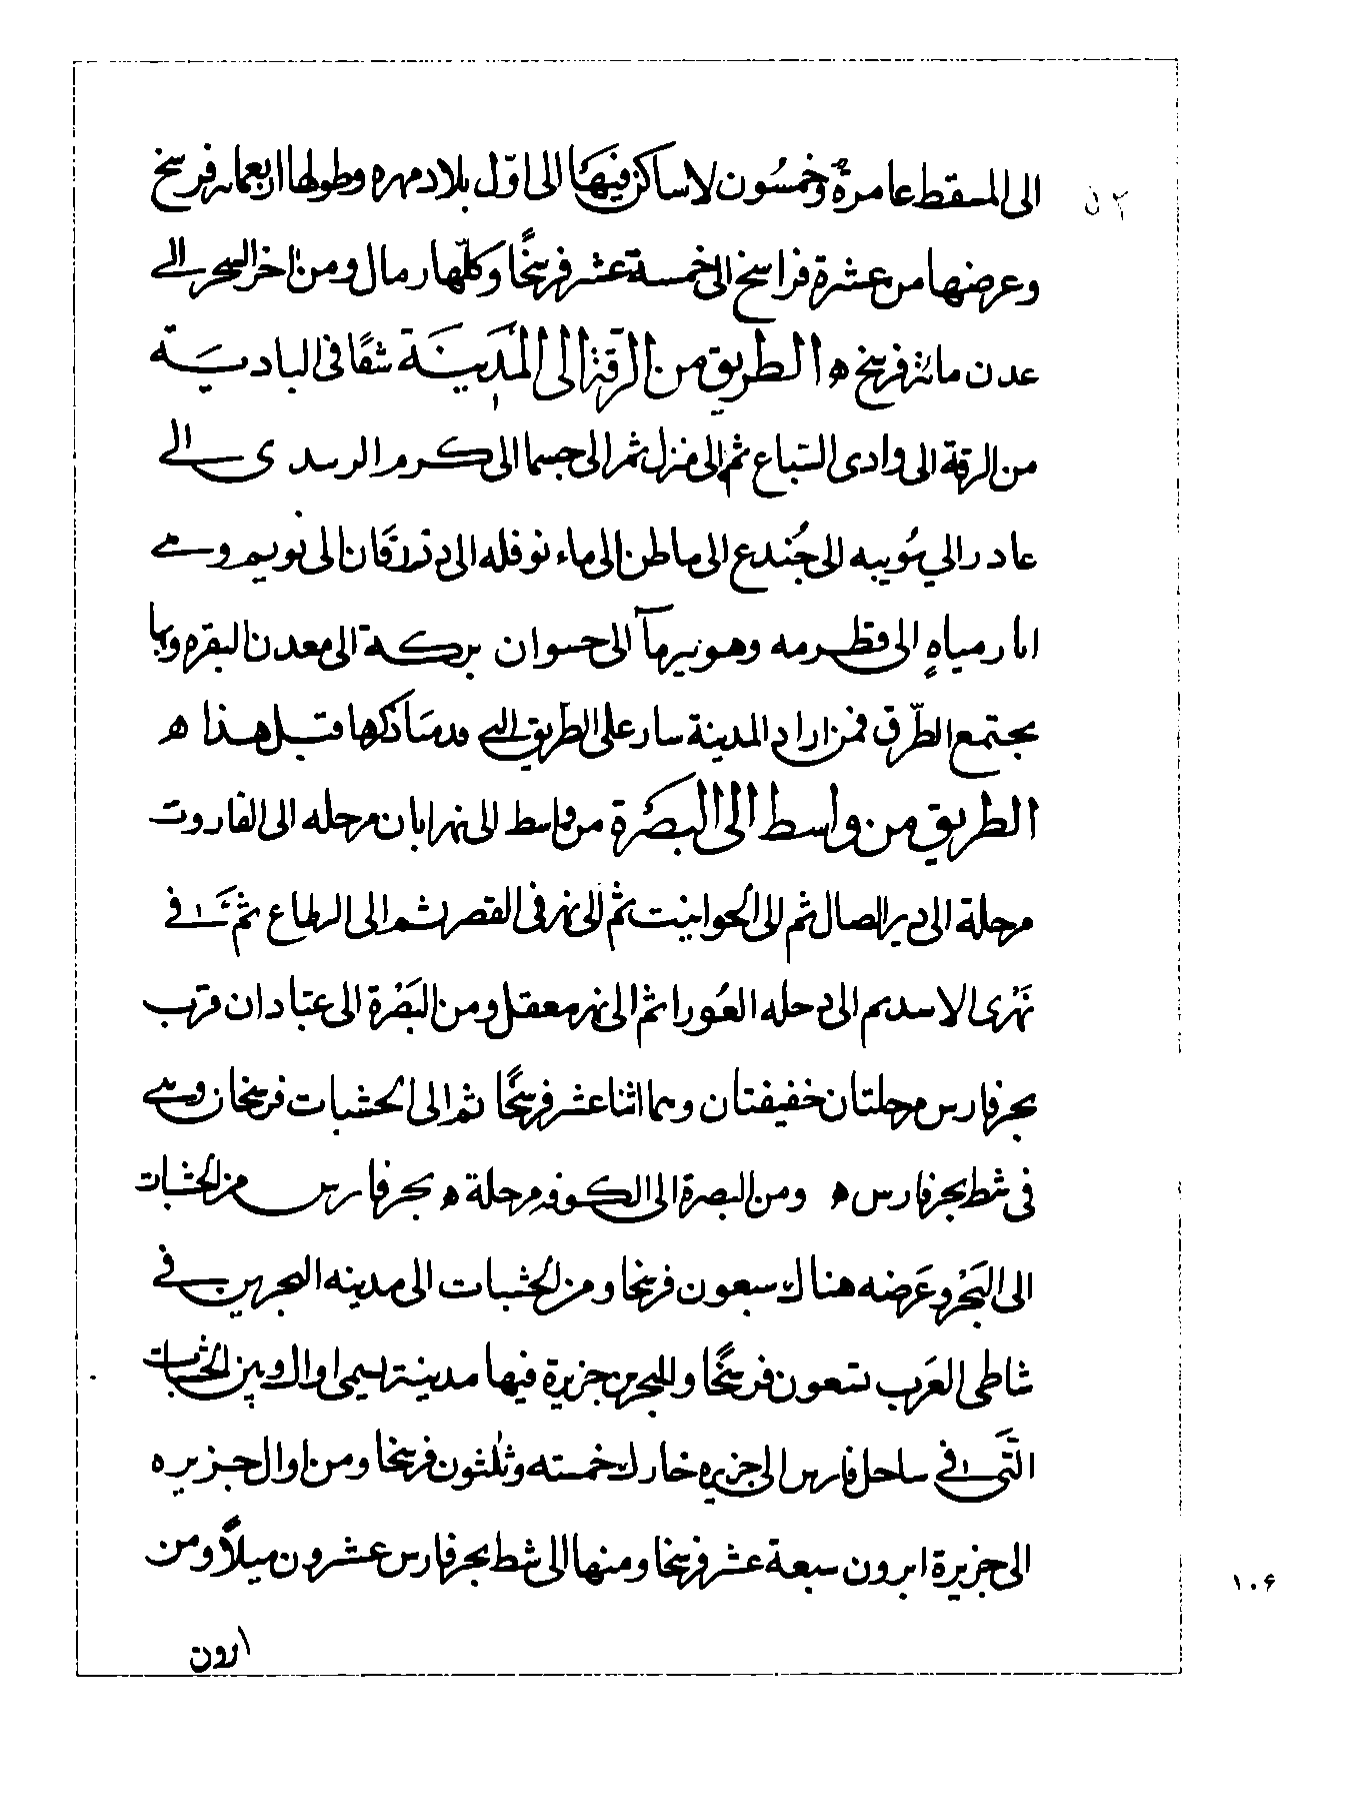 الى المسقط عامرة وخمسون لا ساكن فيها الى اوّل بلاد مهره وطولها اربعمايه فرسخ
وعرضها من عشرة فراسخ الى خمسة عشر فرسخًا وكلّها رمال ومن اخر الشحر الى
عدن مائة فرسخ ه الطريق من الرقة الى المَدِينَة شقًا فى البادية
من الرقة الى وادى السّباع ثم الى منزل ثم الى حسما الى كرم الرسدى الى
عادر الي سُويبه الى جُندع الى ماطن الى ماء نوفله الى الى نويم وهى
ابار مياهٍ الى قطرمه وهو بير ماۤ الى حسوان بركة الى معدن البقره وبها
مجتمع الطّرق فمن اراد المدينة سار على الطريق التى قدمنا ذكرها قبل هذا ه
الطريق من واسط الى البَصْرَة من واسط الى نهرابان مرحله الى الفاروث
مرحلة الى دير الصال ثم الى الحوانيت ثم الى نهر فى القصر ثم الى الرطاع ثم فى
نَهْرى الاسديم الى دجله العُورا ثم الى نهر معقل ومن البَصْرة الى عبّادان قرب
بحر فارس مرحلتان خفيفتان وهما اثنا عشر فرسخًا ثم الى الخشبات فرسخان وهى
فى شط بحر فارس ه ومن البصرة الى الكوفه مرحلة ه بحر فارس من الخشبات
الى البَحْر وعَرضه هناك سبعون فرسخا ومن الخشبات الى مدينه البحرين فى
شاطى العَرب تسعون فرسخًا وللبحرين جزيرة فيها مدينة تسمى اوال وبين الخشبات
التى فى ساحل فارس الى جزيره خارك خمسته وثلثون فرسخا ومن اوال جزيره
الى جزيرة ابرون سبعة عشر فرسخا ومنها الى شط بحر فارس عشرون ميلاً ومن
ارون
۵۲
۱۰۶